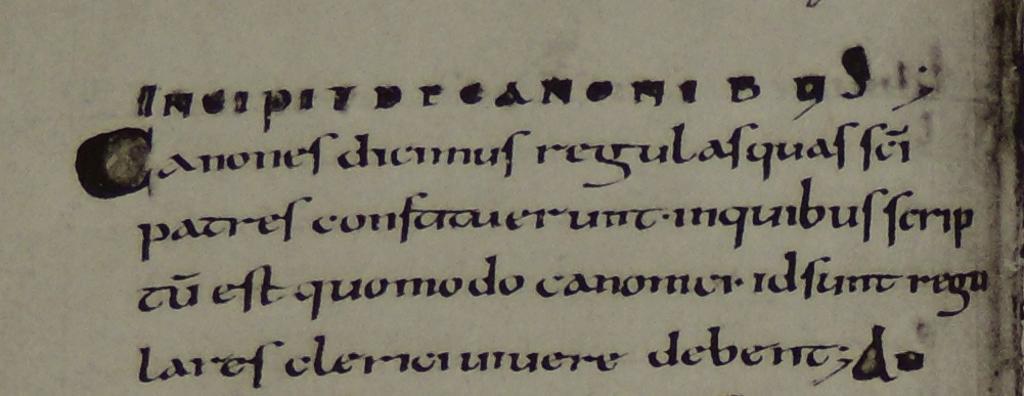 INCIPIT DE CANONIBUS;
Canones dicimus regulas quas scī
patres constituerunt· in quibus scrip
tū est quomodo canonici· id sunt regu
lares clerici uiuere debent; do